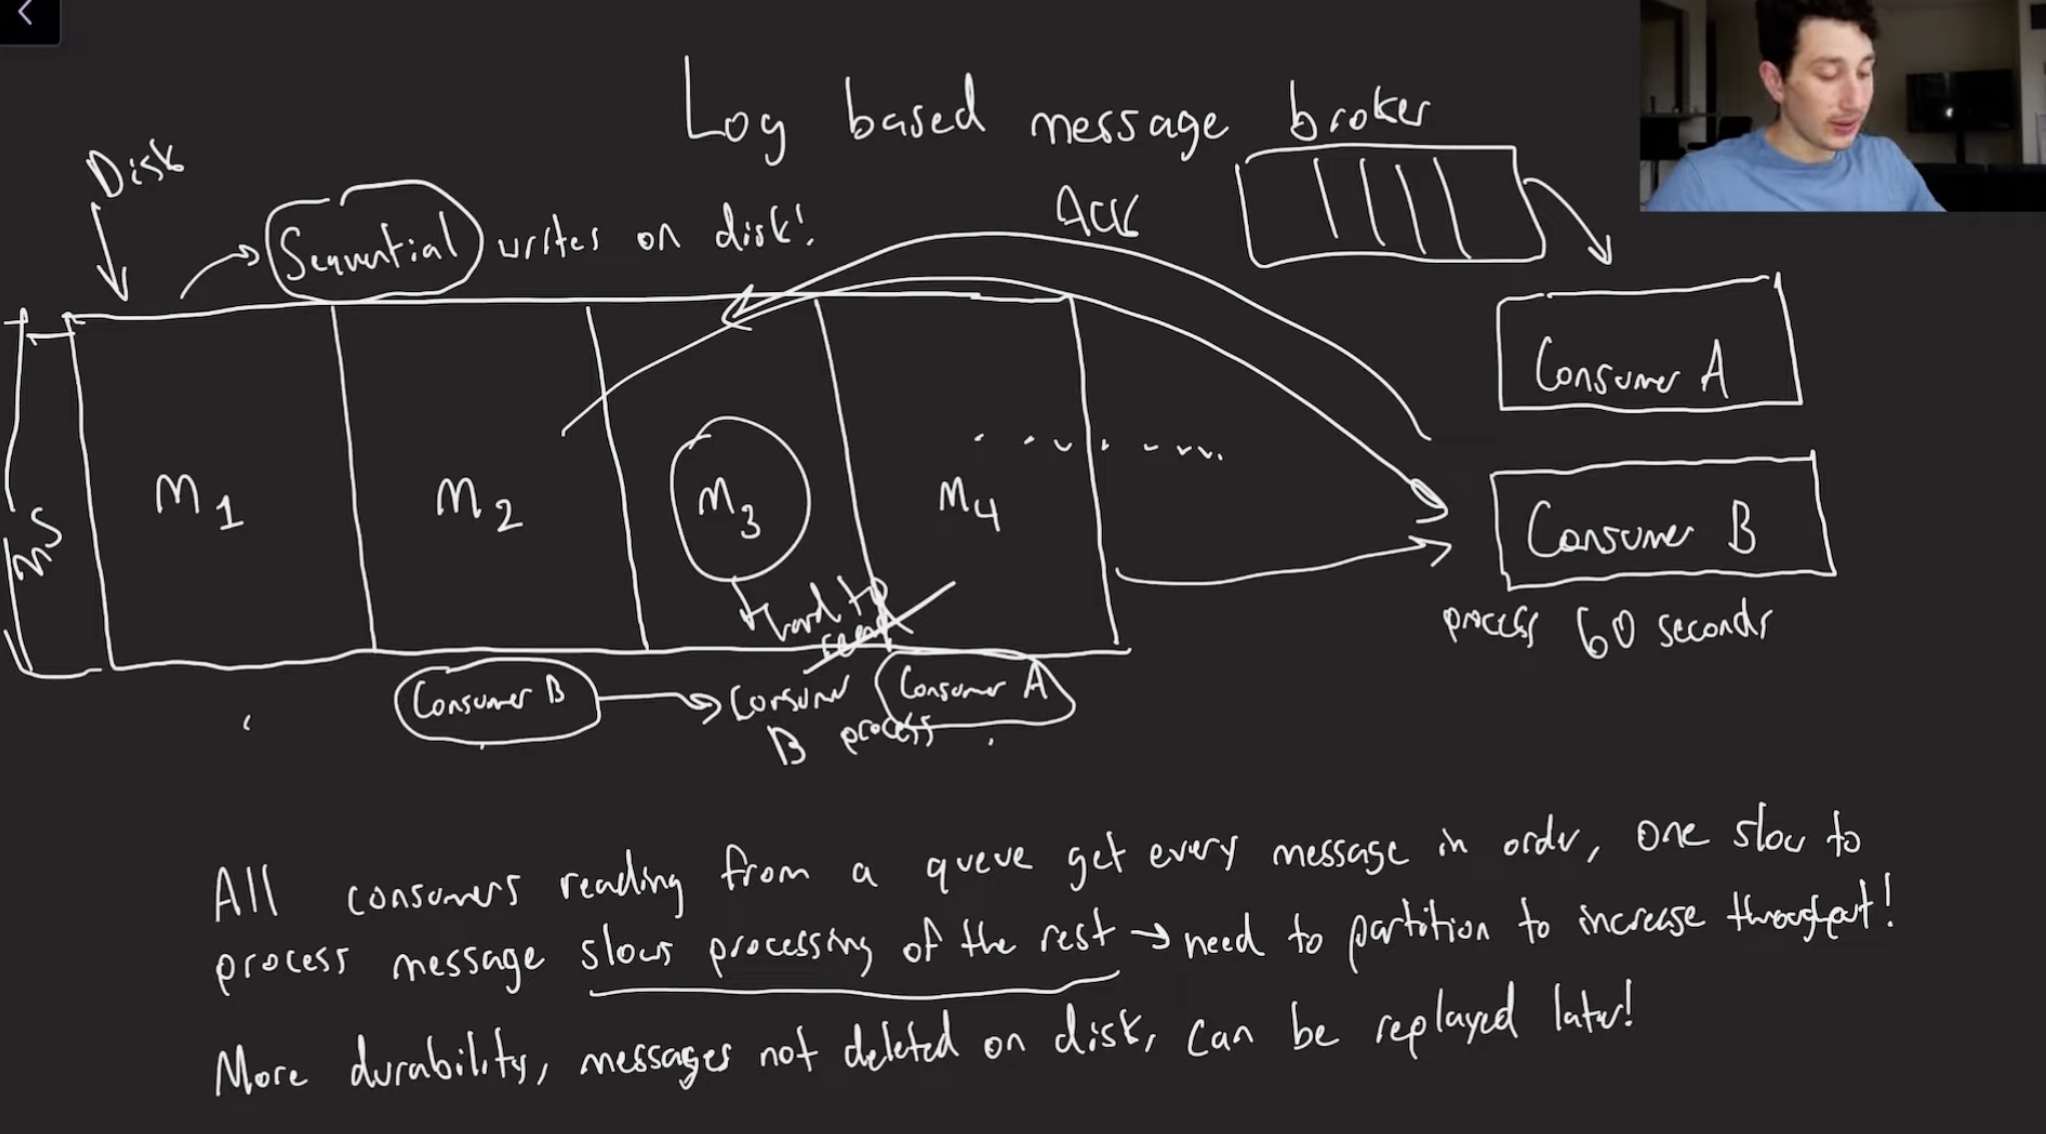 Log based message broker
Disk
Sequential writes on disk!
ACK
Consumer A
M1
M2
M3
M4
M5
Consumer B
process 60 seconds
Hard to
read
Consumer B
Consumer
B process
Consumer A
All consumers reading from a queue get every message in order, one slow to
process message slows processing of the rest → need to partition to increase throughput!
More durability, messages not deleted on disk, can be replayed later!